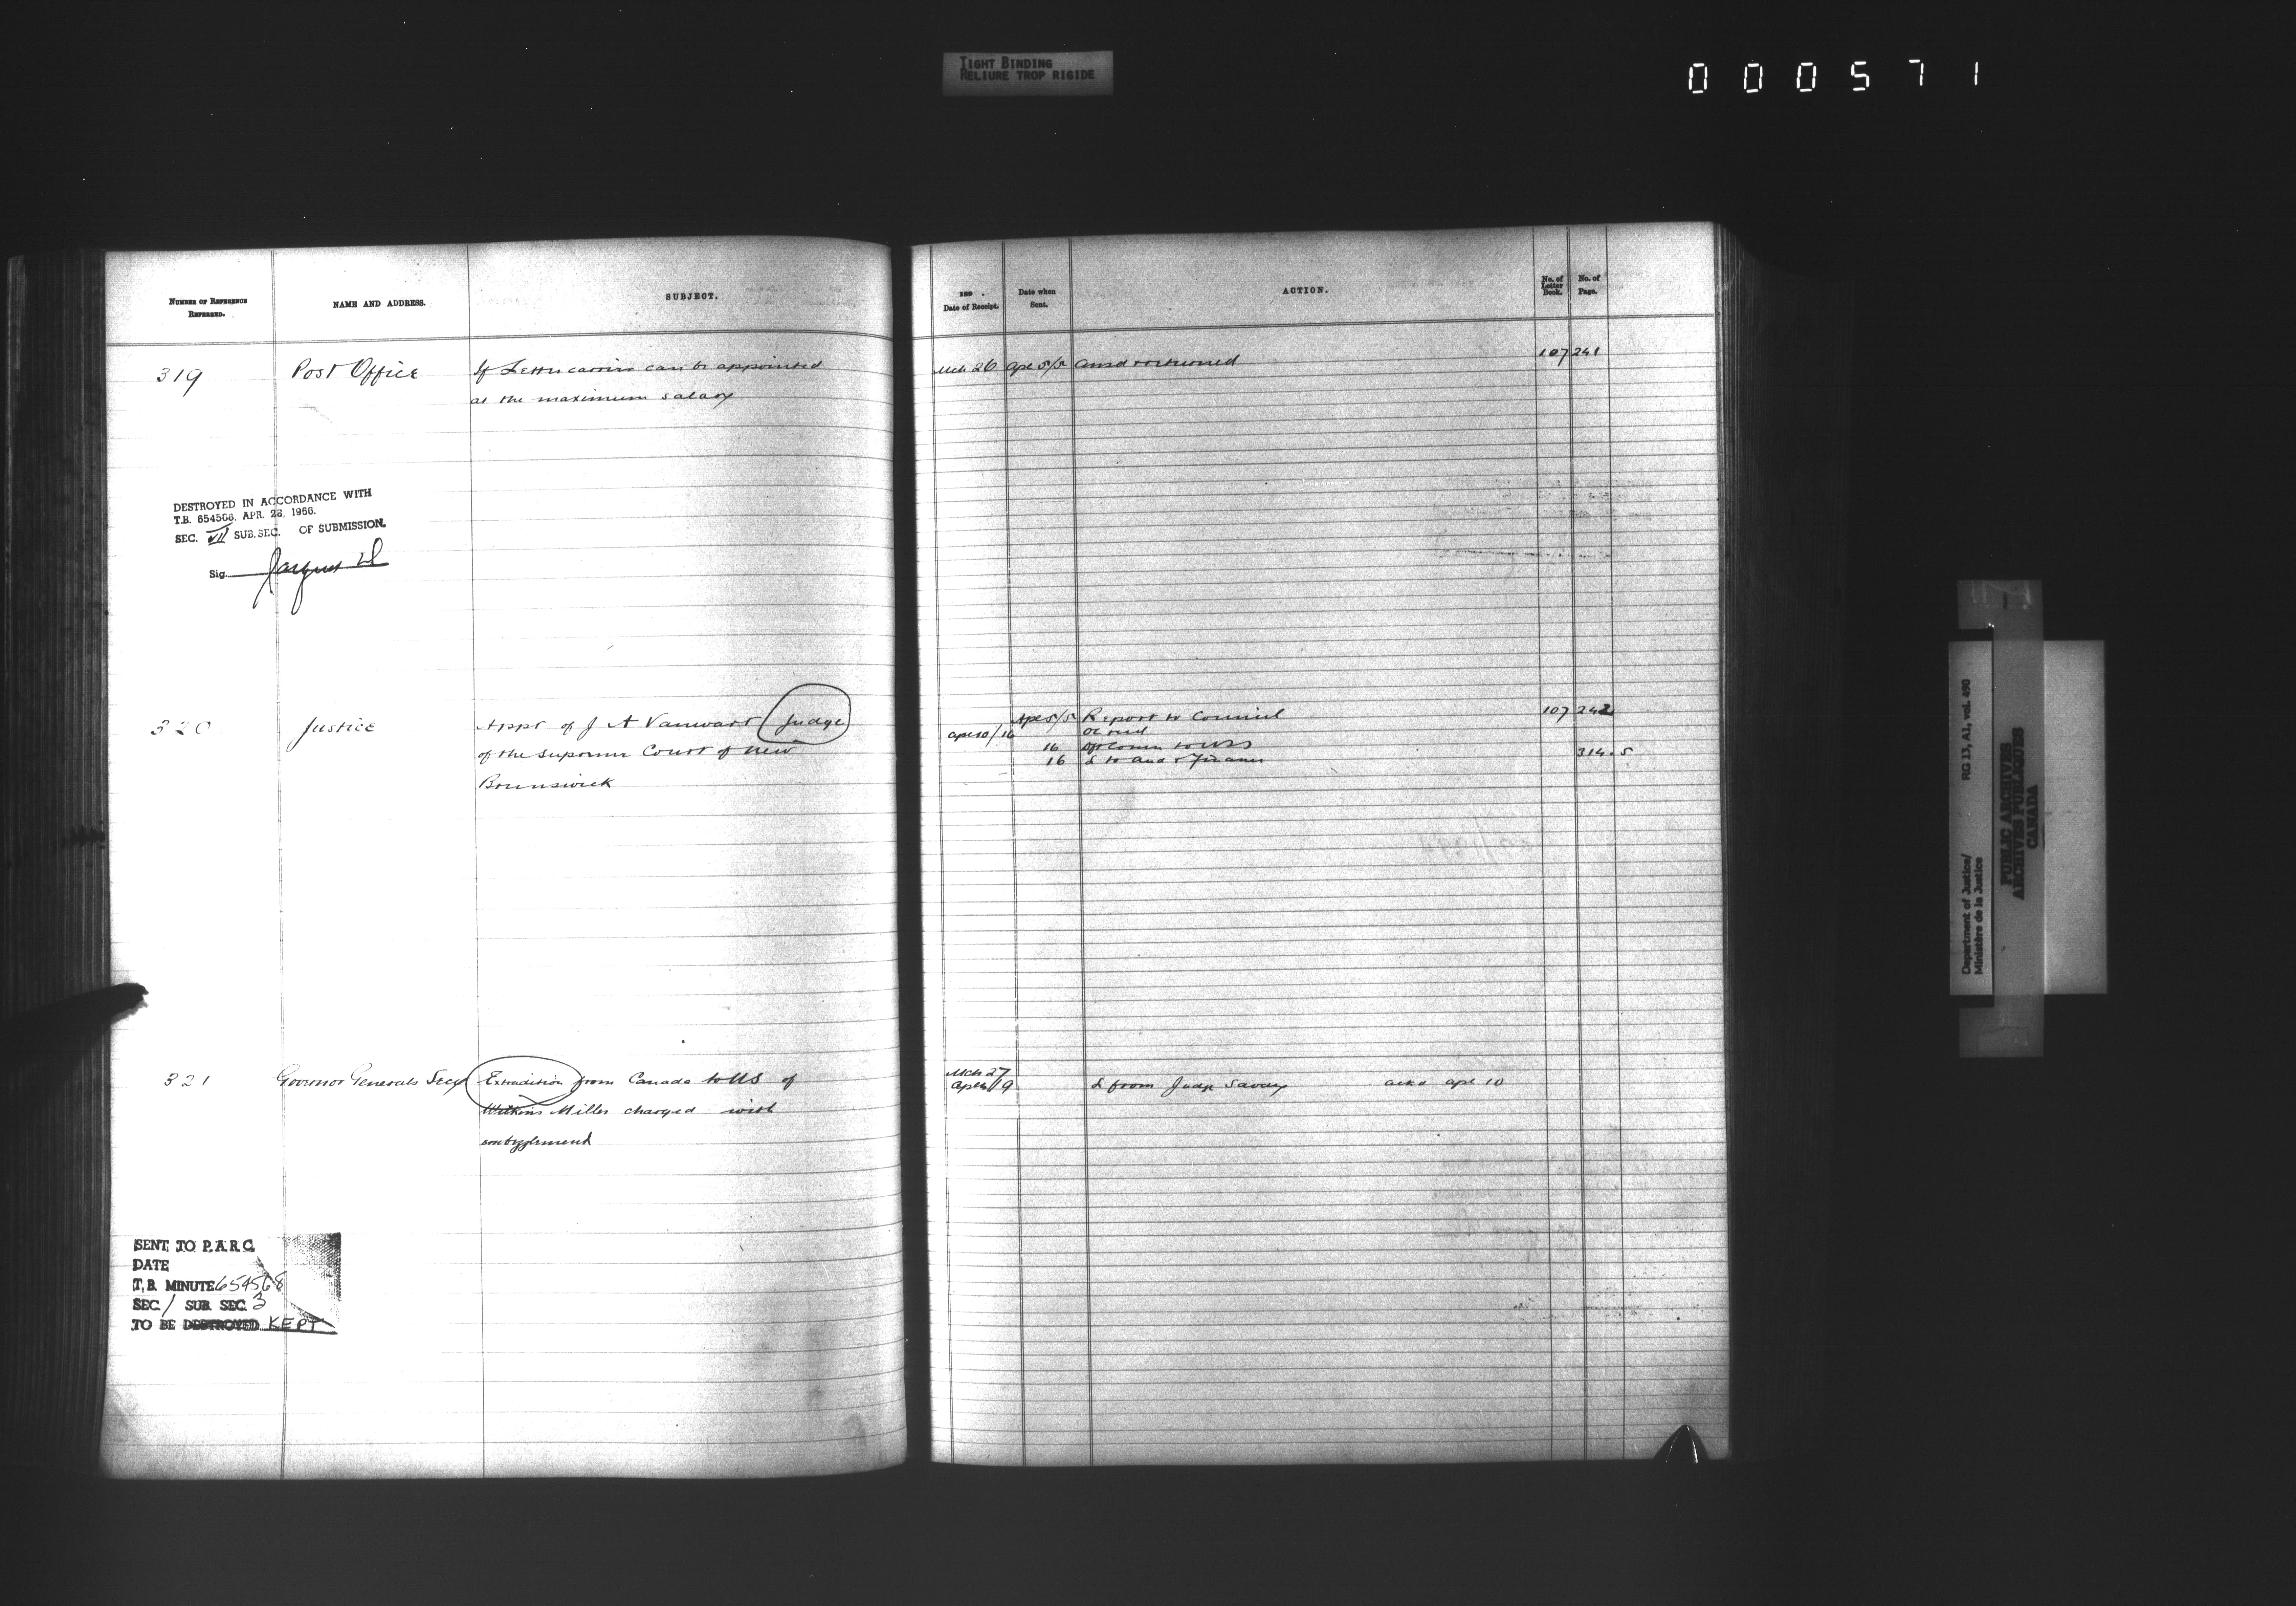 TIGHT BINDING
RELIURE TROP RIGIDE
000571
NUMBER OF REFERENCE REFERRED.
NAME AND ADDRESS.
SUBJECT.
189 .
Date of Receipt.
Date when Sent.
ACTION.
No. of Letter Book.
No. of Page.
319 Post Office If Letter carrier can be appointed
at the maximum salary
Mch 26 Apl 5/5 returned 107 241
DESTROYED IN ACCORDANCE WITH
T.B. 654568. APR. 28. 1966.
SEC. VII SUB.SEC. OF SUBMISSION.
Sig.
320 Justice Appt of J A Vanwart Judge
of the Supreme Court of New
Brunswick
Apl 5/5 Report to Council 107 242
Apl 10/16
16
16 L to Aud & Finance 314.5
321 Governor Generals Secy Extradition from Canada to US of
Miller charged with
embezzlement
Mch 27
L from Judge Savary ackd apl 10
SENT TO P.A.R.C.
DATE
T.B. MINUTE 654568
SEC. / SUB. SEC. 3
TO BE DESTROYED KEPT
Department of Justice/
Ministère de la Justice
RG 13, A1, vol. 490
PUBLIC ARCHIVES
ARCHIVES PUBLIQUES
CANADA